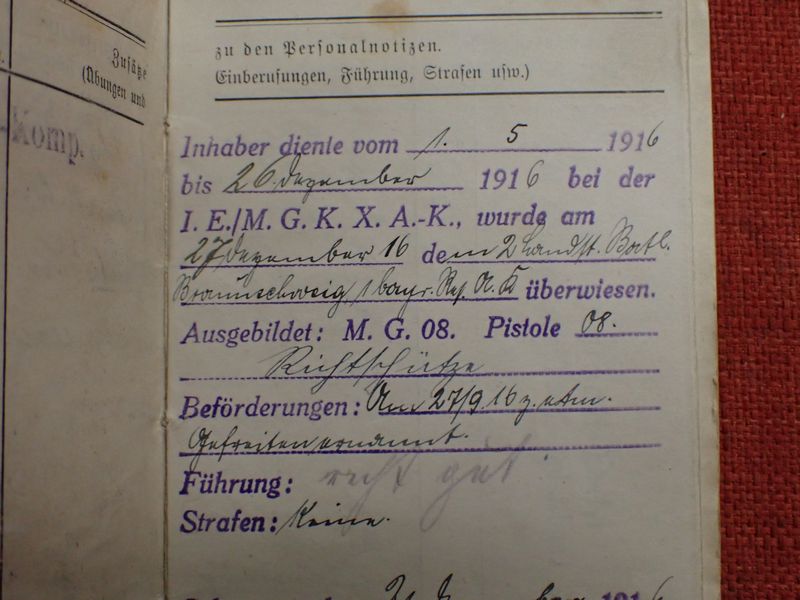 Zusätze
(Übungen und
-Komp.
zu den Personalnotizen.
Einberufungen, Führung, Strafen usw.)
Inhaber diente vom 1. 5 1916
bis 26. Dezember 1916 bei der
I. E./M. G. K. X. A.-K., wurde am
27 Dezember 16 dem 2 Landst. Batl.
Braunschweig, 1 bayr. Res. A. K überwiesen.
Ausgebildet: M. G. 08. Pistole 08.
Richtschütze
Beförderungen: Am 27/9. 16 z.
Gefreiten ernannt.
Führung: recht gut.
Strafen: Keine.
1916